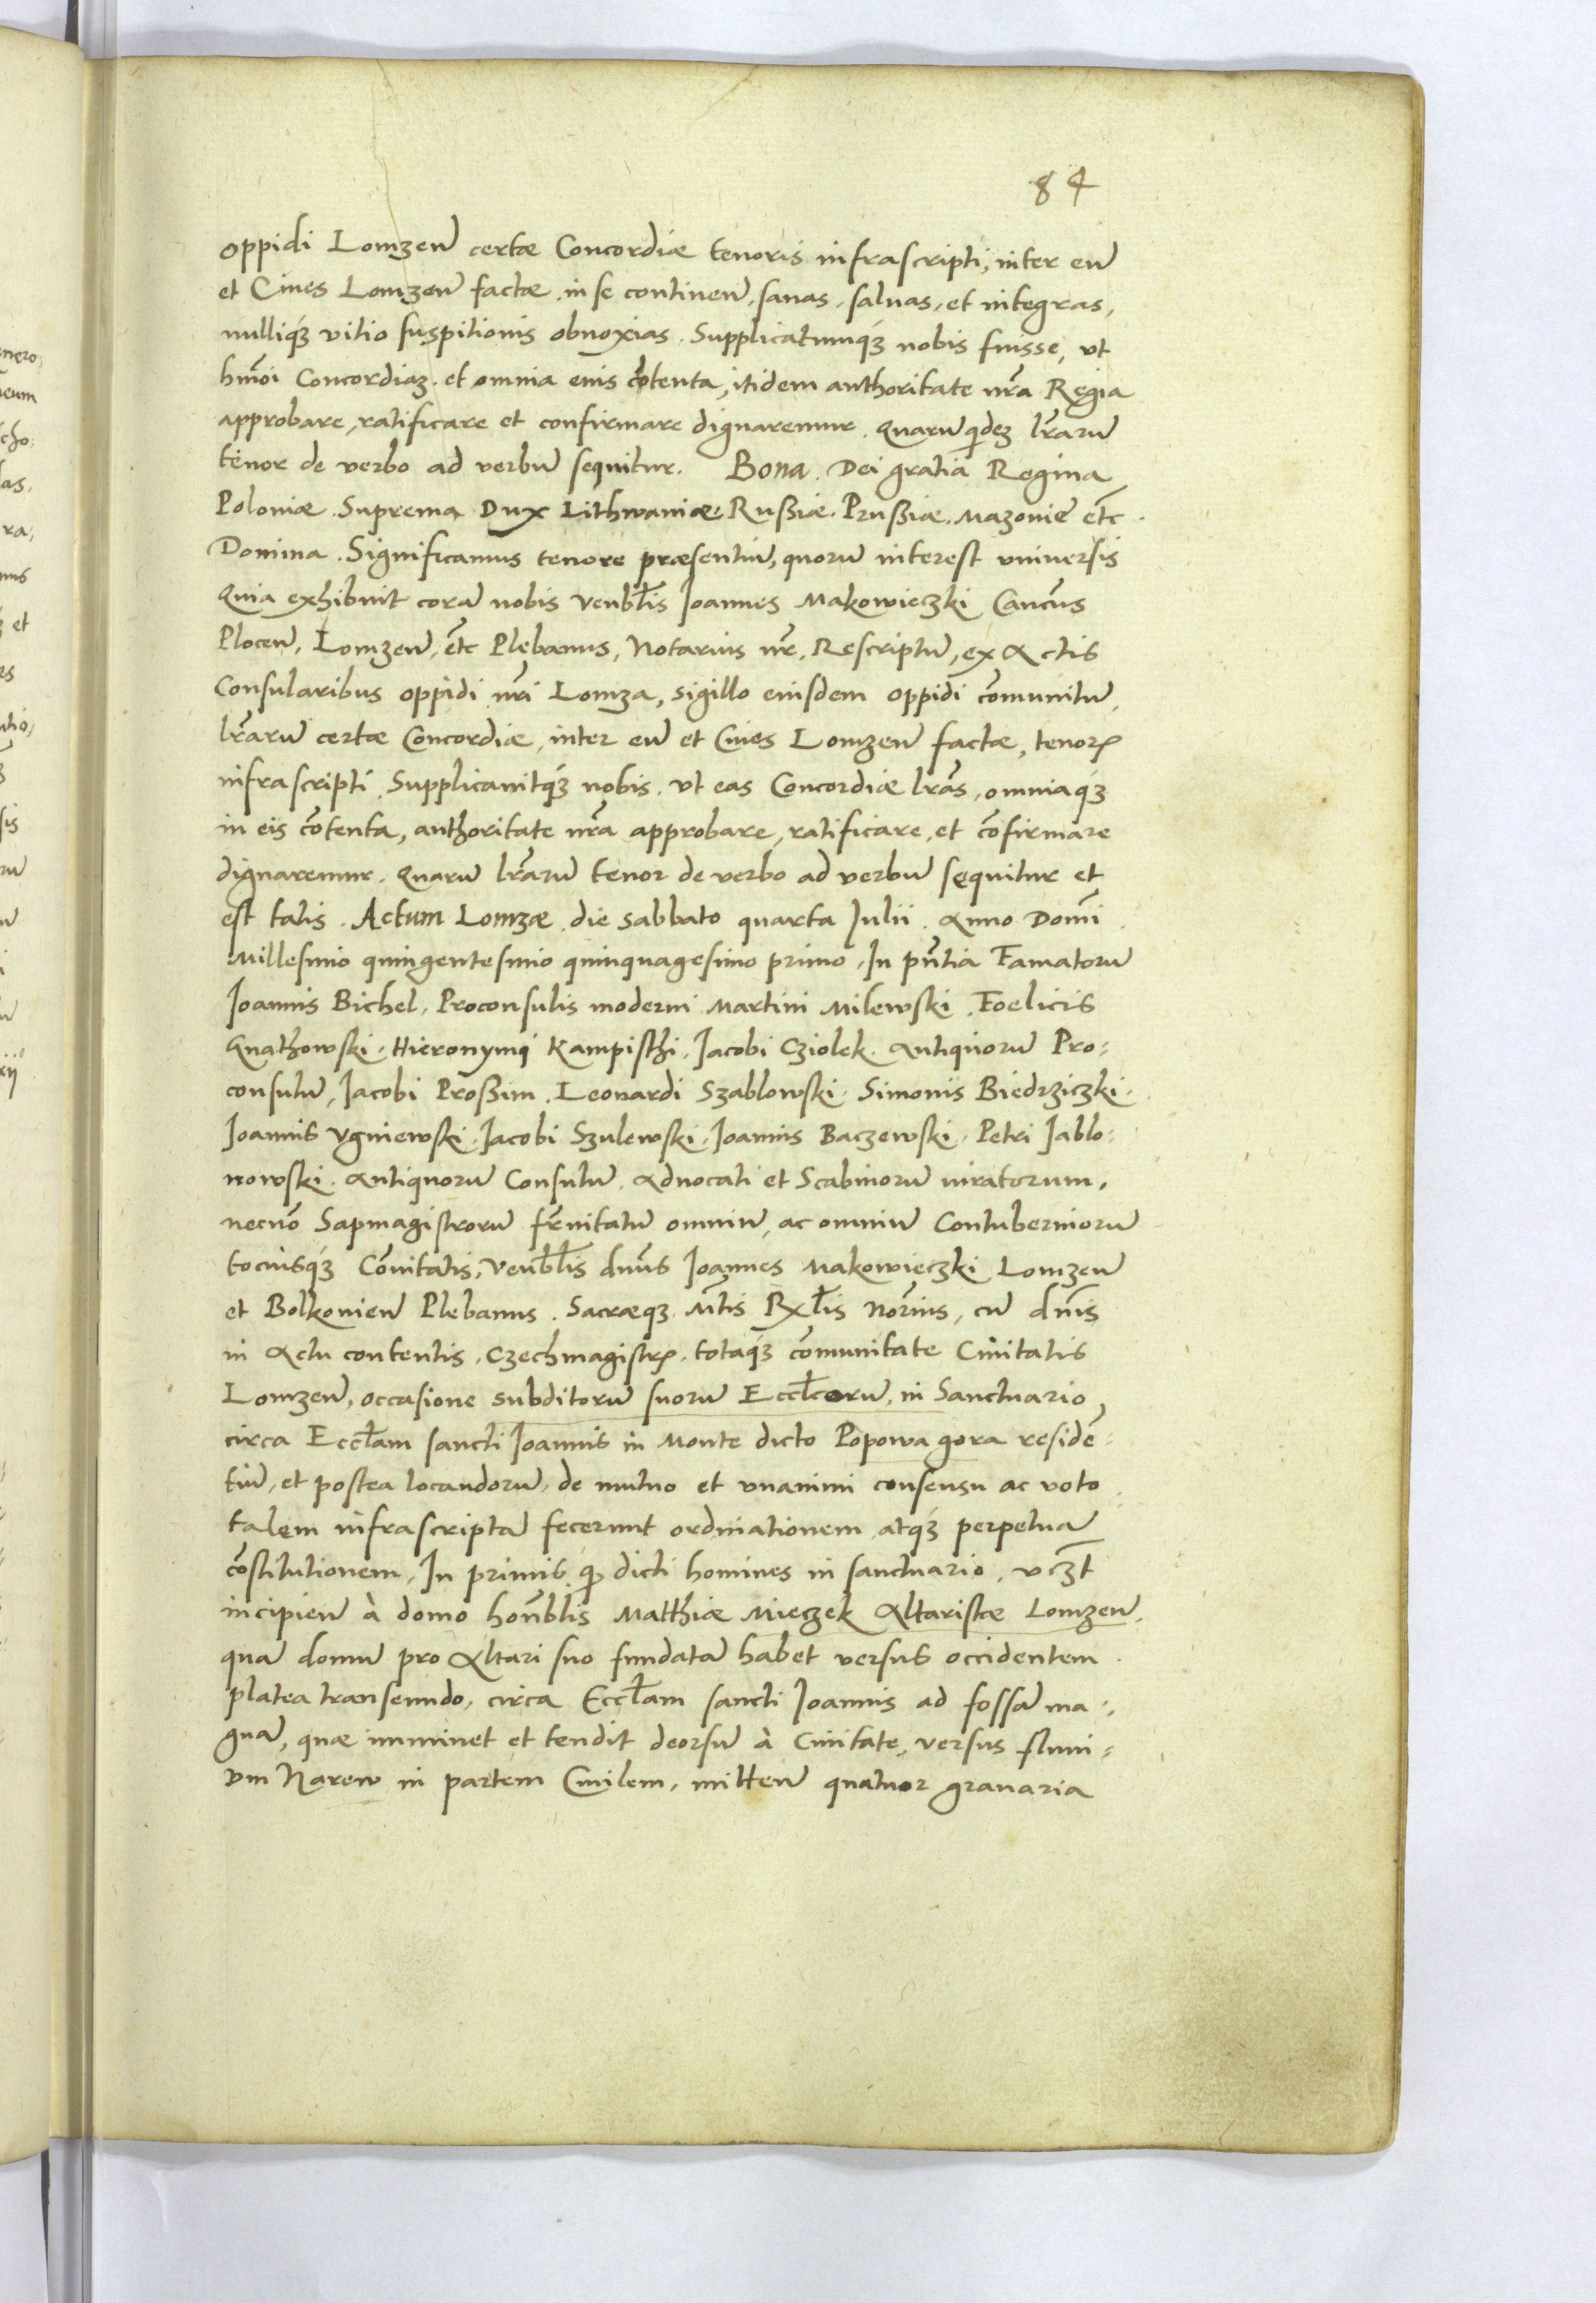 84
oppidi Lomzeñ certæ Concordiæ tenoris infrascripti, inter eũ
et Ciues Lomzeñ factæ in se contineñ, sanas, saluas, et integras,
nulliq́ꝫ vitio suspitionis obnoxias. Supplicatumq́ꝫ nobis fuisse, vt
hmõi Concordiaꝫ et omnia eius cõtenta, itidem authoritate nr̃a Regia
approbare, ratificare et confirmare dignaremur. Quarũ qideꝫ lr̃arũ
tenor de verbo ad verbũ sequitur. Bona Dei gratia Regina
Poloniæ. Suprema Dux Lithwaniæ, Rußiæ, Prußiæ, Mazoniẽ etc̃.
Domina. Significamus tenore præsentiũ, quorũ interest vniversis
Quia exhibuit corã nobis Venbl̃is Joannes Makowieczki Cancũs
Ploceñ, Lomzeñ, etc̃ Plebanus, Notarius nr̃, Rescriptũ, ex Actis
Consularibus oppidi nr̃i Lomza, sigillo eiusdem oppidi cõmunitũ,
lr̃arũ certæ Concordiæ, inter eũ et Ciues Lomzeñ factæ, tenorꝭ
infrascripti. Supplicauitq́ꝫ nobis, vt eas Concordiæ lr̃as, omniaq́ꝫ
in eis cõtenta, authoritate nr̃a approbare, ratificare, et cõfirmare
dignaremur. Quarũ lr̃arũ tenor de verbo ad verbũ sequitur et
est talis. Actum Lomzæ die sabbato quarta Julii. Anno Domĩ
Millesimo quingentesimo quinquagesimo primo. In pñtia Famatorũ
Joannis Bichel, Proconsulis moderni Martini Milewski, Foelicis
Gnathowski, Hieronymi Kampisthi, Jacobi Cziolek, Antiquorũ Pro=
consulũ, Jacobi Proßim, Leonardi Szablowski, Simonis Biedrziczki,
Joannis Vgniewski, Jacobi Szulewski, Joannis Baczewski, Petri Jablo=
nowski, Antiquorũ Consulũ, Aduocati et Scabinorũ iuratorum,
necnõ Sapmagistrorũ fr̃nitatũ omniũ, ac omniũ Contuberniorũ
tociusq́ꝫ Cõmitatis, Venbl̃is dnũs Joannes Makowieczki Lomzeñ
et Bolkonieñ Plebanus. Sacræqꝫ Mt̃is Rx̃l̃is Nor̃ius, cũ dñis
in Actu contentis, Czechmagistrꝭ, totaq́ꝫ cõmunitate Ciuitatis
Lomzeñ, occasione subditorũ suorũ Eccl̃corũ, in Sanctuario
circa Eccl̃am sancti Joannis in Monte dicto Popowa gora residẽ=
tiũ, et postea locandorũ, de mutuo et vnanimi consensu ac voto
talem infrascriptã fecerunt ordinationem atq́ꝫ perpetuã
cõstitutionem. In primis ꝙ dicti homines in sanctuario, vcꝫt
incipieñ à domo honr̃blis Matthiæ Mieczek Altaristæ Lomzeñ,
quã domũ pro Altari suo fundatã habet versus occidentem
plateã transeundo, circa Eccl̃am sancti Joannis ad fossã ma=
gnã, quæ imminet et tendit deorsũ à Ciuitate, versus fluui=
vm Narew in partem Ciuilem, mitteñ quatuor granaria